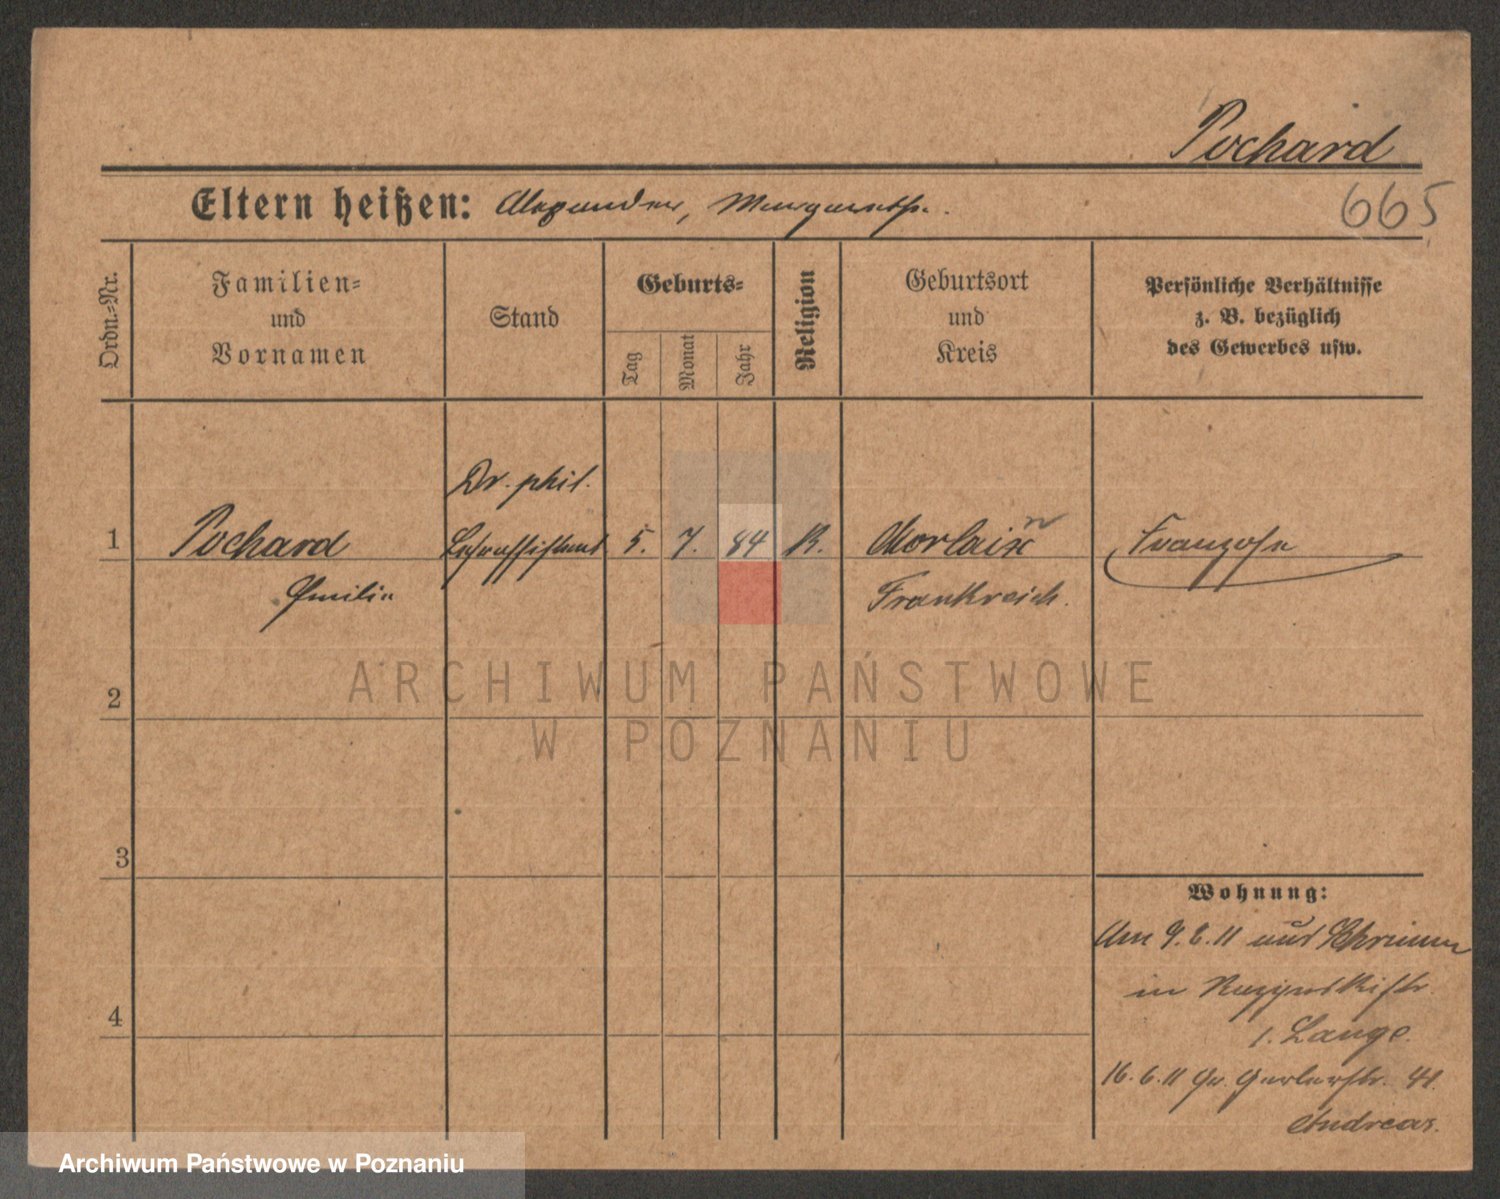 Pochard
Eltern heißen: Alexander, Margarethe.
665
Ordn.-Nr.
Familien-
und
Vornamen
Stand
Geburts-
Tag
Monat
Jahr
Religion
Geburtsort
und
Kreis
Persönliche Verhältnisse
z. B. bezüglich
des Gewerbes usw.
Dr. phil.
1 Pochard Lehrassistent 5. 7. 84 K. Morlaix Franzose
Emilie Frankreich.
ARCHIWUM PAŃSTWOWE
W POZNANIU
2
3
4
Wohnung:
Am 9.2.11 aus Schrimm
in Raczynskistr.
1. Lange.
16.6.11 Gr. Gerberstr. 41.
Andreas.
Archiwum Państwowe w Poznaniu